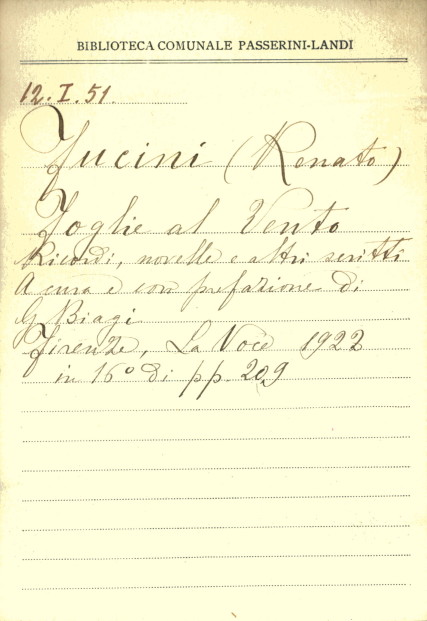 BIBLIOTECA COMUNALE PASSERINI-LANDI
12.I.51.
Fucini (Renato)
Foglie al Vento
Ricordi, novelle e altri scritti
A cura e con prefazione di
G. Biagi
Firenze, La Voce 1922
in 16° di pp. 209